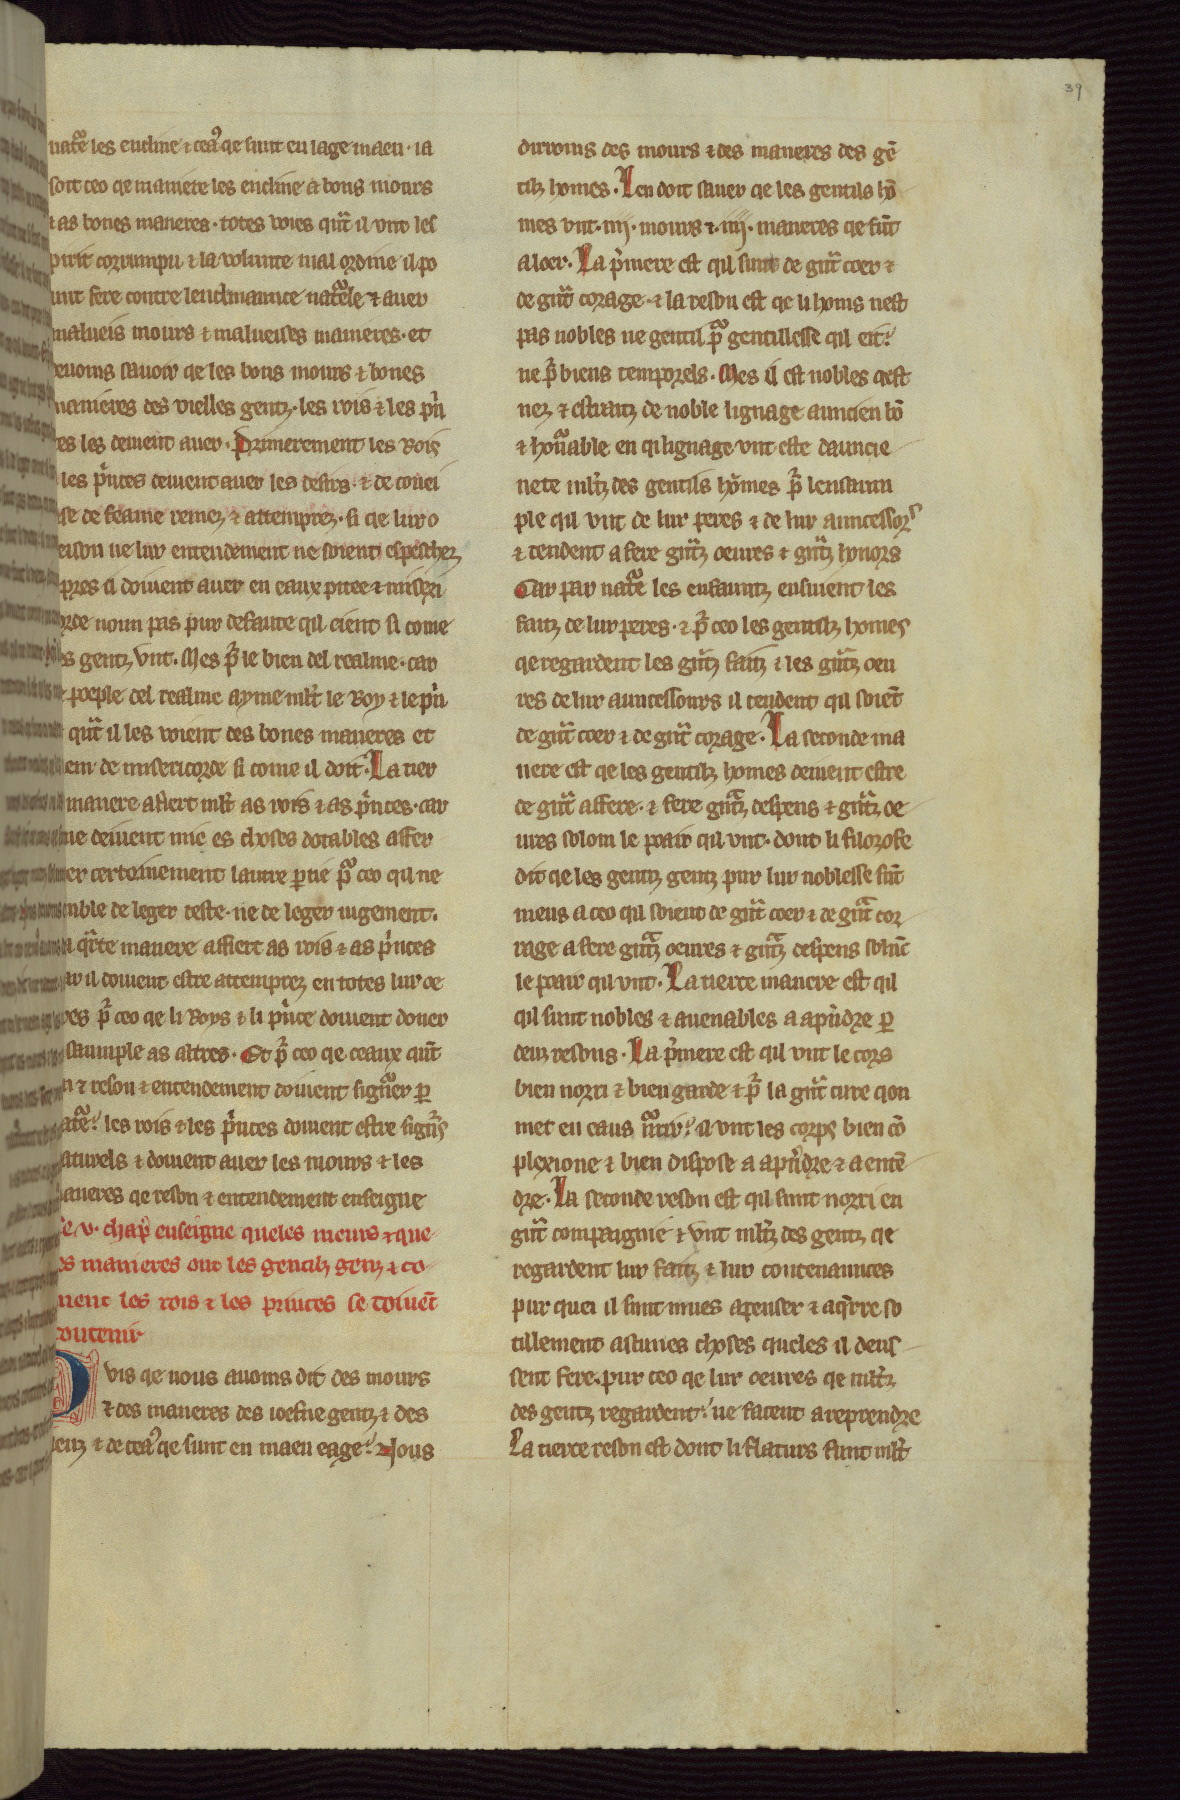 39
nat̃e les encline ⁊ ceaͥ qe sunt en lage maen · ia
soit ceo qe maniere les encline a bons mours
⁊ as bones maneres · totes voies qũt il vnt les
pirit corrumpu ⁊ la volunte mal ordine il po
unt fere contre lenclinaunce nat̃ele ⁊ auer
malueis mours ⁊ malueises manieres · et
deuoms sauoir qe les bons mours ⁊ bones
manieres des vielles gentz · les rois ⁊ les p̃n
ces les deiuent auer · Primerement les Rois
les p̃nces deiuent auer les desirs · ⁊ de couei
ise de feame remez ⁊ attemprez · si qe lur o
eison ne lur entendement ne soient espeschez
pres il doiuent auer en eaux pitee ⁊ miseri
orde noun pas pur defaute qil eient si come
s gentz vnt · Mes p̃ le bien del realme · car
poeple del realme ayme mlt̃ le Roy ⁊ le p̃n
qũt il les voient des bones maneres et
em de misericorde si come il doit · La tier
manere affiert mlt̃ as rois ⁊ as p̃nces · car
ne deiuent mie es choses dotables affer
er certeinement lautre ꝑtie p̃ ceo qil ne
mble de leger teste · ne de leger iugement ·
a q̃rte manere affiert as rois ⁊ as p̃nces
ar il doiuent estre attemprez en totes lur oe
res p̃ ceo qe li Roys ⁊ li p̃nce doiuent doner
saumple as altres · Et p̃ ceo qe ceaux qũt
n ⁊ reson ⁊ entendement doiuent signer ꝑ
at̃e · les rois ⁊ les p̃nces doiuent estre sign̄s
aturels ⁊ doiuent auer les mours ⁊ les
aneres qe reson ⁊ entendement enseigne
e · v · chap̃ enseigne queles meurs ⁊ que
es manieres ont les gentilz genz ⁊ co
ment les rois ⁊ les princes se doiuẽt
contenir
Puis qe nous auoms dit des mours
⁊ des maneres des ioefne gentz ⁊ des
ieuz ⁊ de ceaͥ qe sunt en maen eage · Nous
dirroms des mours ⁊ des maneres des gẽ
tilz homes · Len doit sauer qe les gentils hõ
mes vnt · iiij · mours ⁊ · iiij · maneres qe sũt
a loer · La p̃mere est qil sunt de gũt coer ⁊
de gũt corage · ⁊ la reson est qe li homs nest
pas nobles ne gentil p̃ gentillesse qil eit ·
ne p̃ biens temporels · Mes il est nobles qest
nez ⁊ estraitz de noble lignage auncien bõ
⁊ hoñable en qi lignage vnt este dauncie
nete mlt̃z des gentils hõmes p̃ lensaum
ple qil vnt de lur peres ⁊ de lur auncessors
⁊ tendent a fere gũtz oeures ⁊ gũtz honors
Car par nat̃e les enfauntz ensuient les
faitz de lur peres · ⁊ p̃ ceo les gentilz homes
qe regardent les gũtz faitz ⁊ les gũtz oeu
res de lur auncessours il tendent qil soiẽt
de gũt coer ⁊ de gũt corage · La seconde ma
nere est qe les gentilz homes deiuent estre
de gũt affere · ⁊ fere gũtz despens ⁊ gũtz oe
ures solom le poair qil vnt · dont li filozofe
dit qe les gentz gentz pur lur noblesse sũt
meus a ceo qil soient de gũt coer ⁊ de gũt cor
rage a fere gũtz oeures ⁊ gũtz despens solũc
le poair qil vnt · La tierce manere est qil
qil sunt nobles ⁊ auenables a ap̃ndre ꝑ
deuz resons · La p̃mere est qil vnt le cors
bien norri ⁊ bien garde ⁊ p̃ la gũt cure qon
met en eaus nurir · il vnt les corps bien cõ
plexione ⁊ bien dispose a ap̃ndre ⁊ a entẽ
dre · La seconde reson est qil sunt norri en
gũt compaignie ⁊ vnt mlt̃z des gentz qe
regardent lur faitz ⁊ lur contenaunces
pur quei il sunt mues a penser ⁊ a q̃rre so
tillement ascunes choses queles il deus
sent fere · pur ceo qe lur oeures qe mlt̃z
des gentz regardent · ne facent a reprendre
La tierce reson est dont li flaturs sunt mlt̃